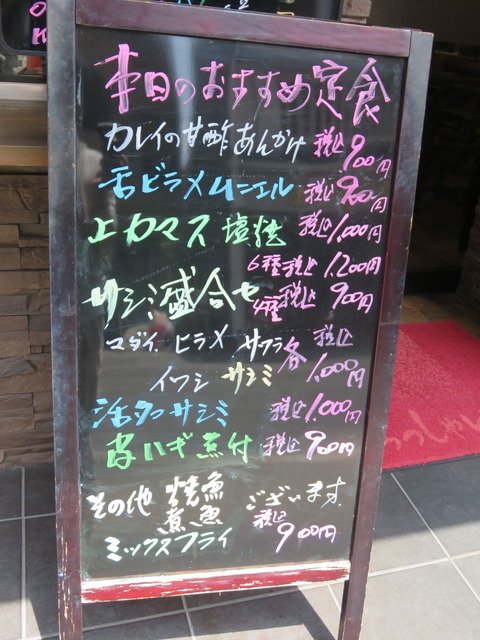 本日のおすすめ定食
カレイの甘酢あんかけ 税込900円
舌ビラメムニエル 税込900円
上カマス塩焼 税込1,000円
サシミ盛合せ 6種税込1,200円
4種税込900円
マダイ、ヒラメ サワラ 各税込1,000円
イワシ サシミ
活タコサシミ 税込1,000円
皮ハギ煮付 税込900円
その他 焼魚 煮魚 ございます。
ミックスフライ 税込900円
いらっしゃい